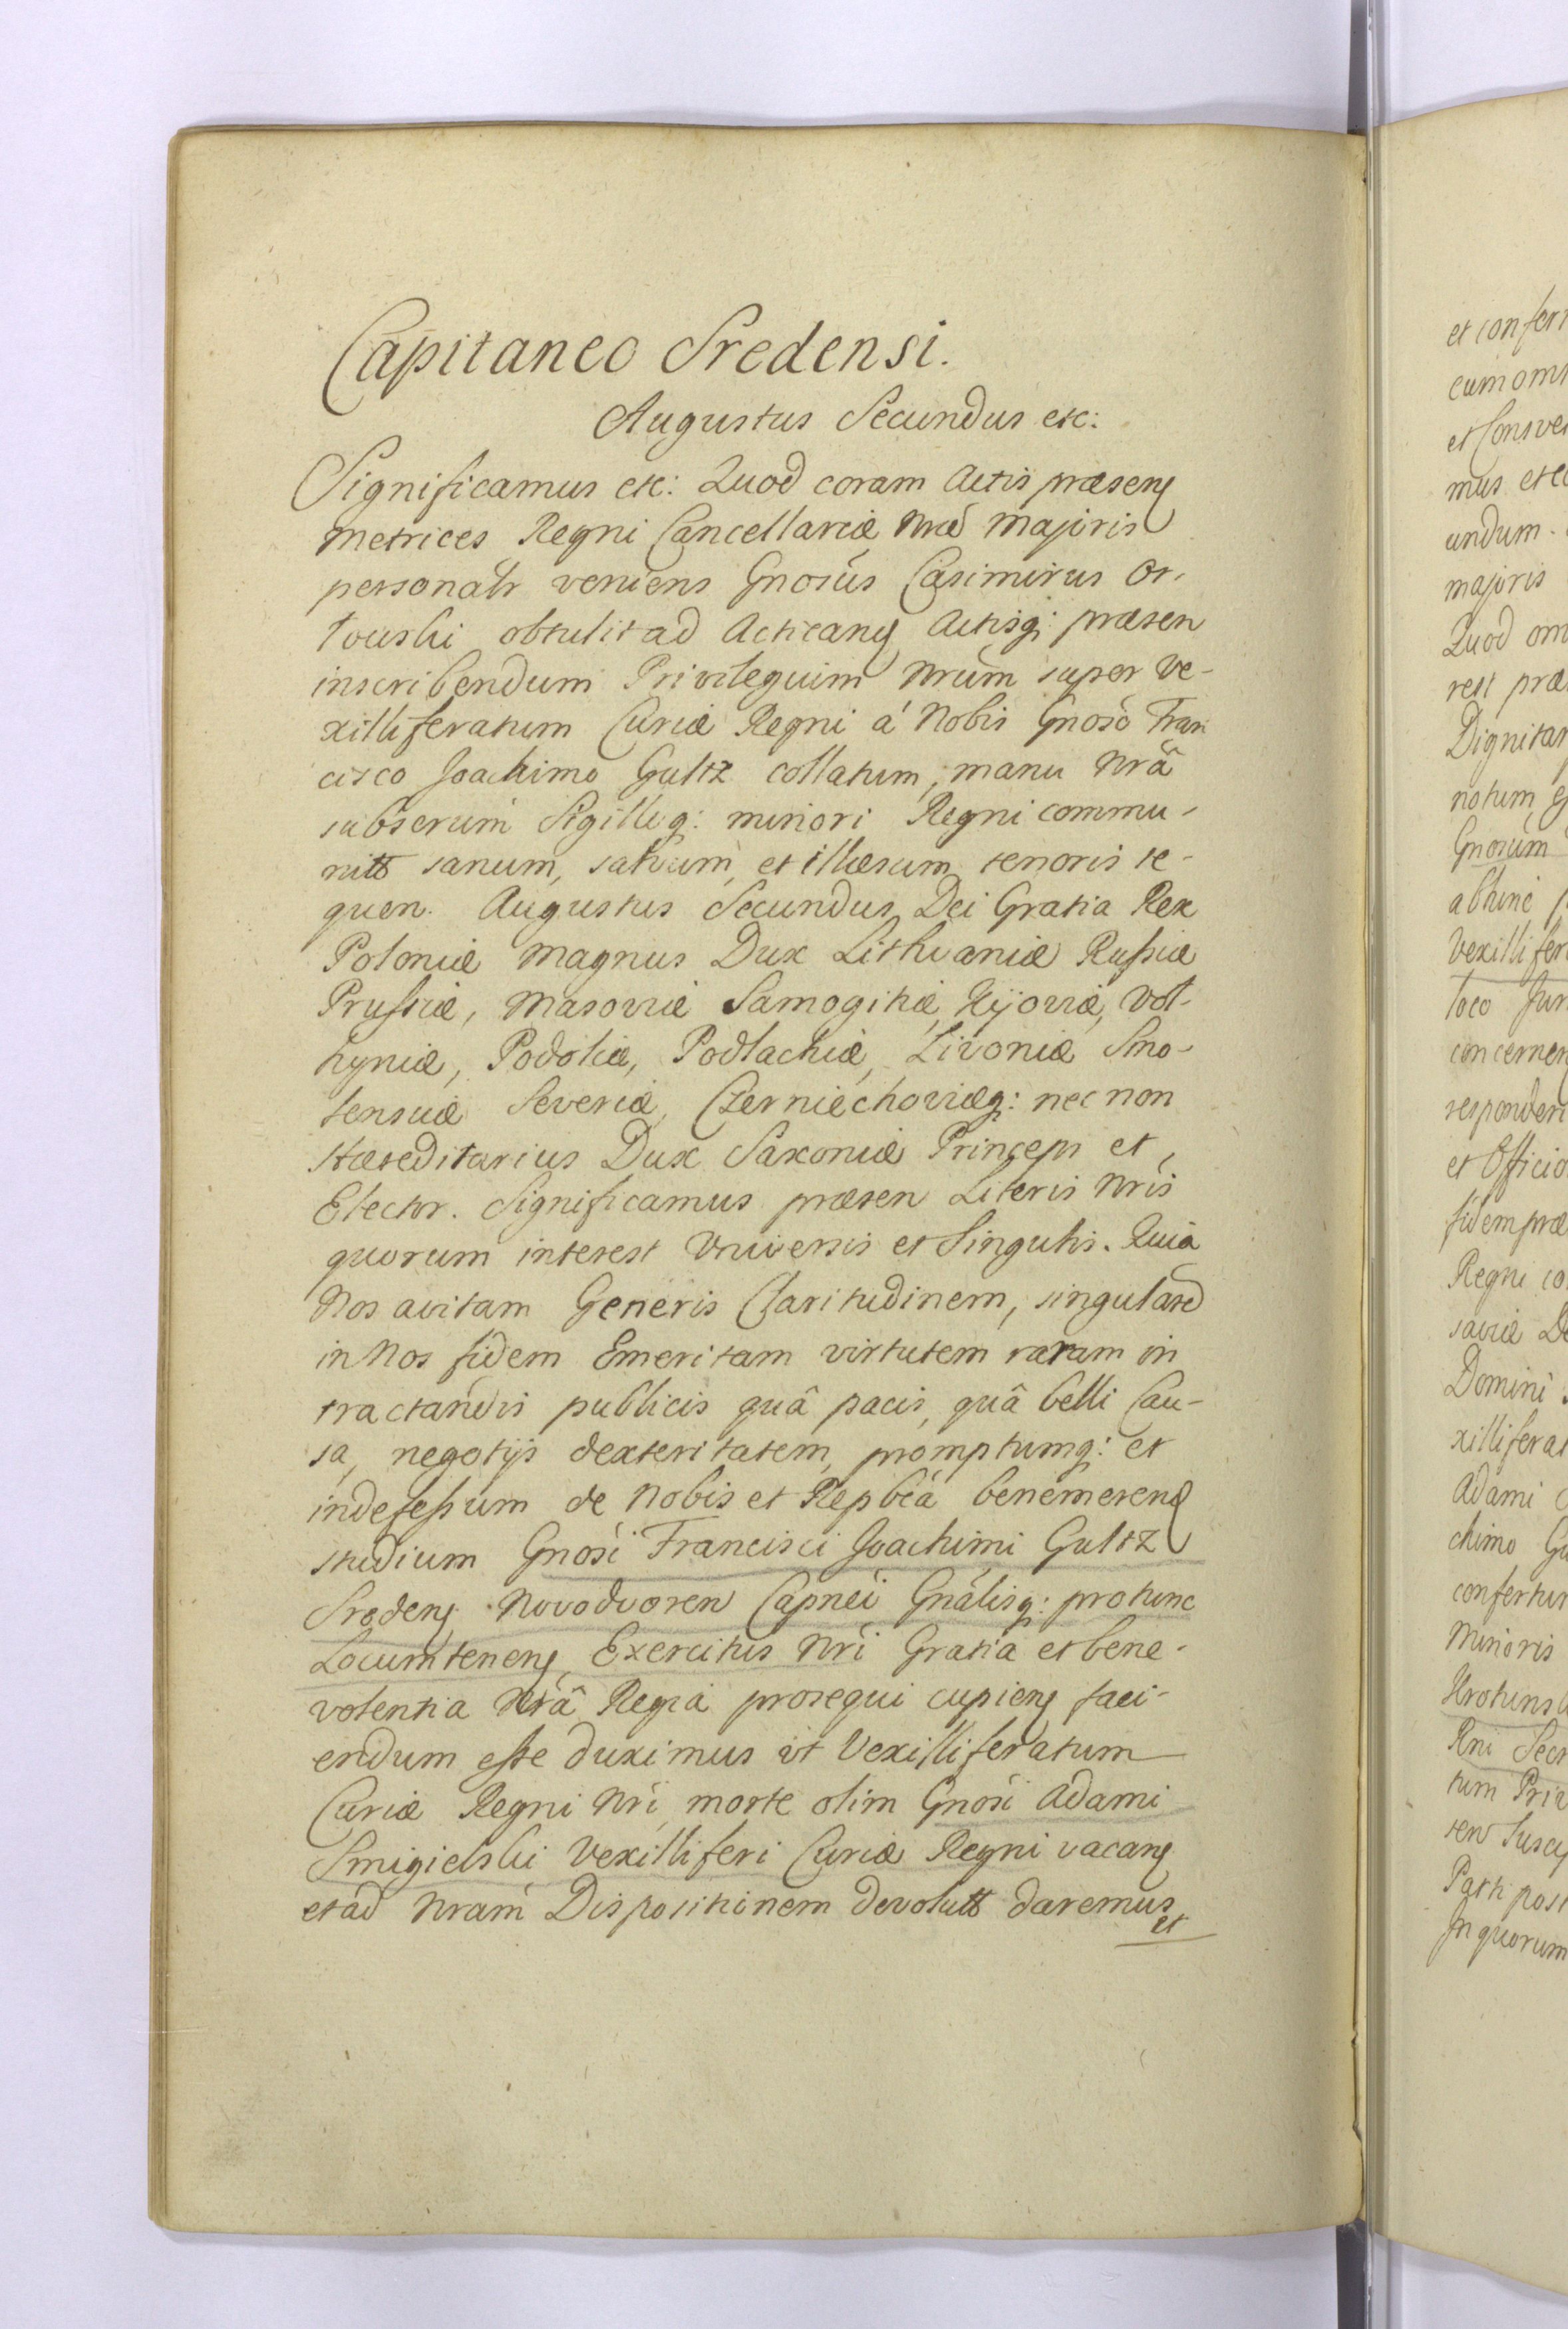 Capitaneo Sredensi.
Augustus Secundus etc:
Significamus etc: Quod coram Actis præsenꝭ
metrices Regni Cancellariæ Nræ Majoris
personalr veniens Gnosus Casimirus Or-
łowski obtulit ad Acticanꝭ Actisq: præsen
inscribendum Privilegium Nrum super Ve-
xilliferatum Curiæ Regni á Nobis Gnoso Fran
cisco Joachimo Gultz collatum, manu Nrâ
subscrum Sigilloq: minori Regni commu-
nitt sanum, salvum, et illæsum tenoris se-
quen. Augustus Secundus Dei Gratia Rex
Poloniæ Magnus Dux Lithvaniæ Russiæ
Prussiæ, Masoviæ Samogitiæ, Kijoviæ, Vol-
hyniæ, Podoliæ, Podlachiæ, Livoniæ Smo-
lensciæ Severiæ, Czerniechoviæq: nec non
Hæreditarius Dux Saxoniæ Princeps et
Elector. Significamus præsen Literis Nris
quorum interest Vniversis et Singulis. Quia
Nos avitam Generis Claritudinem, singulare
in Nos fidem Emeritam virtutem raram in
tractandis publicis quâ pacis, quâ belli Cau-
sa, negotijs dexteritatem, promptumq: et
indefessum de Nobis et Repbca benemerenꝭ
studium Gnosi Francisci Joachimi Gultz
Sredenꝭ Novodvoren Capnei Gnalisq: protunc
Locumtenenꝭ, Exercitus Nri Gratia et bene-
volentia Nrâ Regia prosequi cupienꝭ faci-
endum esse duximus ut Vexilliferatum
Curiæ Regni Nri, morte olim Gnosi Adami
Smigielski Vexilliferi Curiæ Regni vacanꝭ
et ad Nram Dispositionem devolutt daremus
et
et confer
cum om
et Consve
mus et
undum.
majoris
Quod om
rest præ
Dignitar
notum
Gnosum
abhinc
Vexillifer
loco Jur
concernen
responder
et Officio
fidem præ
Regni co
saviæ De
Domini
xilliferat
Adami
chimo Gu
confertur
Minoris
Krotinsk
Rni Secr
tum Priv
sen Suscep
Parti post
In quorum